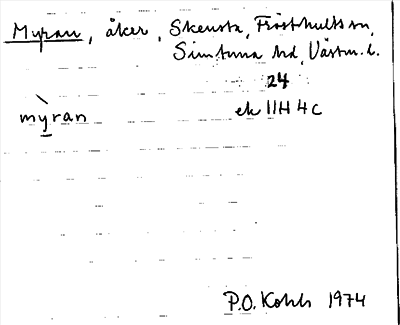 Myran, åker, Skensta, Frösthults sn,
Simtuna hd, Västm. l.
24
mỳran ek 11H 4c
P.O. Kohls 1974